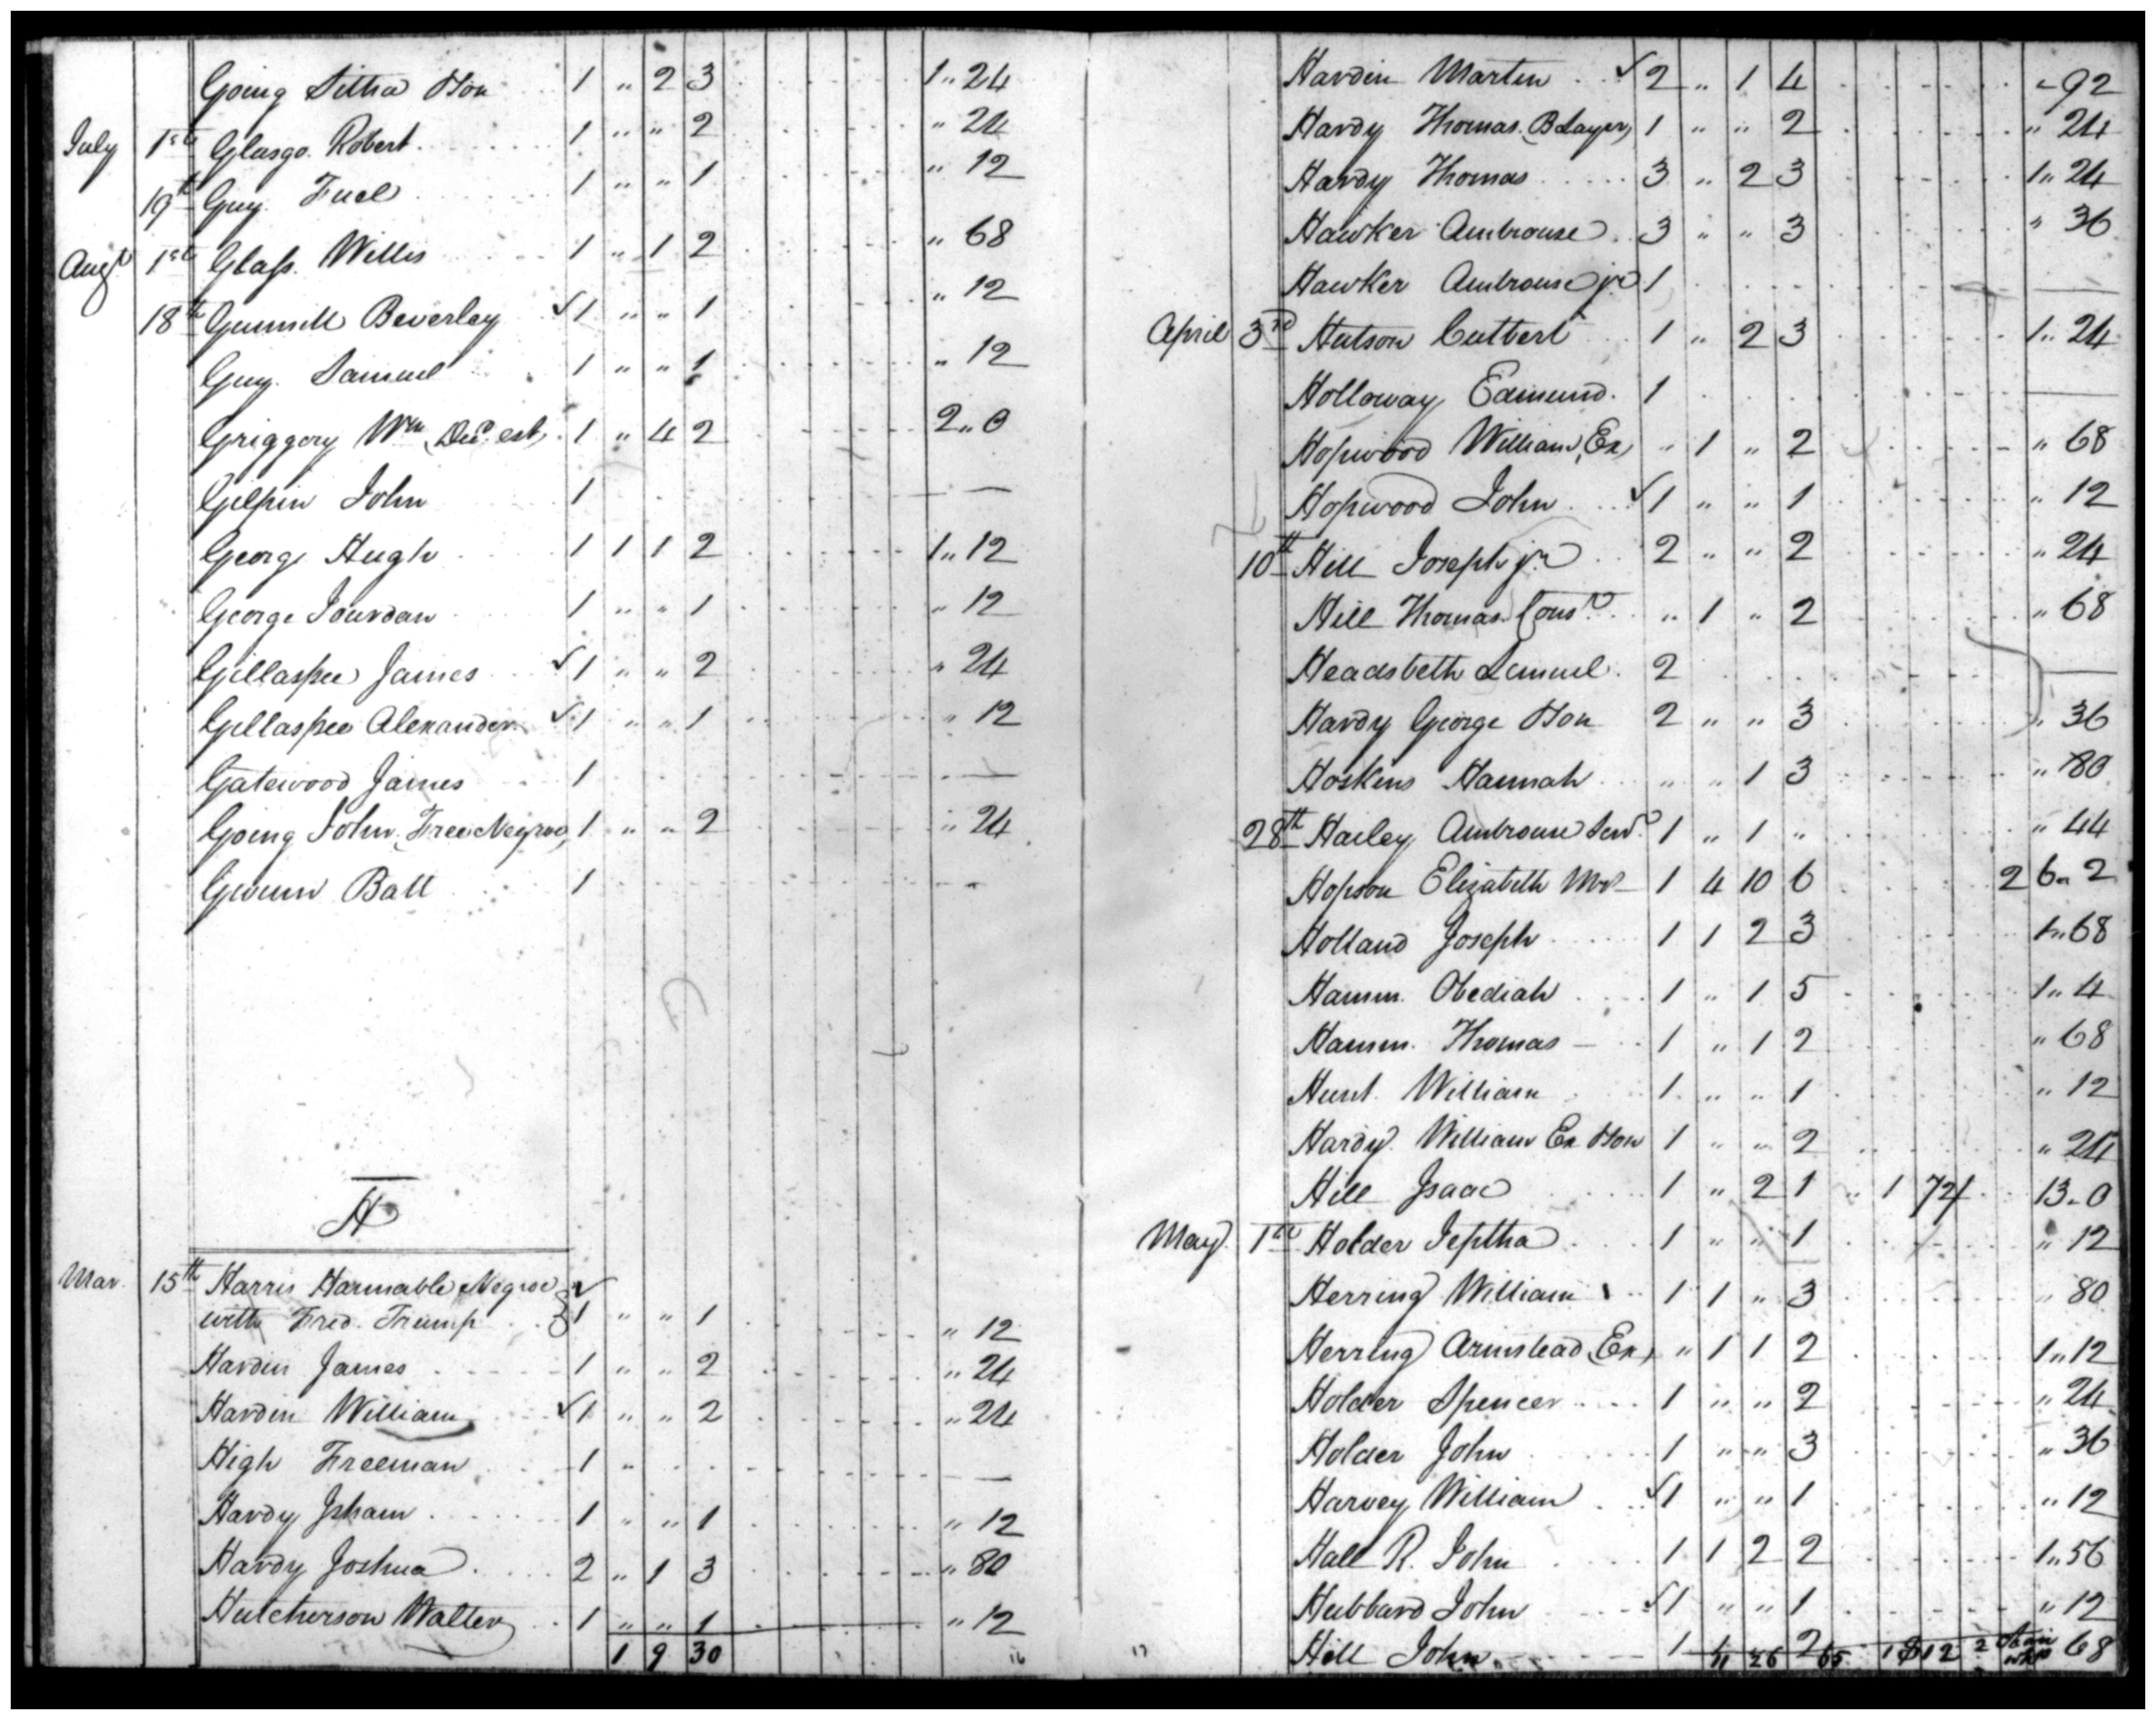 Going Litha Hon 1 " 2 3 1" 24
July 1st Glasgo. Robert 1 " " 2 " 24
19th Guy. Fuel 1 " " 1 " 12
Augt 1st Glass. Willis 1 " 1 2 " 68
18th Gunnell Beverley √1 " " 1 " 12
Guy. Samuel 1 " " 1 " 12
Griggory Wm (Decd est) 1 " 4 2 2" 0
Gilpin John 1 —
George Hugh 1 1 1 2 1" 12
George Jourdan 1 " " 1 " 12
Gillaspee James √1 " " 2 " 24
Gillaspee Alexander √1 " " 1 " 12
Gatewood James 1 —
Going John (Free Negroe) 1 " " 2 " 24
Gwinn Ball 1 -
H
Mar. 15th Harris Harmable Negroe √
with Fred. Trump 1 " " 1 " 12
Hardin James 1 " " 2 " 24
Hardin William √1 " " 2 " 24
High Freeman 1 " —
Hardy Isham 1 " " 1 " 12
Hardy Joshua 2 " 1 3 " 80
Hutcherson Walter 1 " " 1 " 12
1 9 30 16
Hardin Martin √2 " 1 4 " 92
Hardy Thomas (B Layer) 1 " " 2 " 24
Hardy Thomas 3 " 2 3 1" 24
Hawker Ambrouse 3 " " 3 " 36
Hawker Ambrouse jr 1 —
April 3rd Hutson Cutbert 1 " 2 3 1" 24
Holloway Edmund. 1 —
Hopwood William (Ex) " 1 " 2 " 68
Hopwood John √1 " " 1 " 12
10th Hill Joseph jr 2 " " 2 " 24
Hill Thomas Const. " 1 " 2 " 68
Headsbeth Lemuel. 2 —
Hardy George Hon 2 " " 3 " 36
Hoskins Hannah " " 1 3 " 80
28th Hailey Ambrouse Senr 1 " 1 " " 44
Hopson Elizabeth Mrs 1 4 10 6 2 6" 2
Holland Joseph 1 1 2 3 1" 68
Hamm. Obediah 1 " 1 5 1" 4
Hamm. Thomas — 1 " 1 2 " 68
Hunt. William 1 " " 1 " 12
Hardy. William Ex Hon 1 " " 2 " 24
Hill Isaac 1 " 2 1 " 1 72/ 13" 0
May. 1st Holder Jeptha 1 " " 1 " 12
Herring William 1 1 " 3 " 80
Herring Armstead (Ex) " 1 1 2 1" 12
Holder Spencer 1 " " 2 " 24
Holder John 1 " " 3 " 36
Harvey William √1 " " 1 " 12
Hall R. John 1 1 2 2 1" 56
Hubbard John √1 " " 1 " 12
Hill John 1 1 2 68
17 11 26 65 1 $12 2